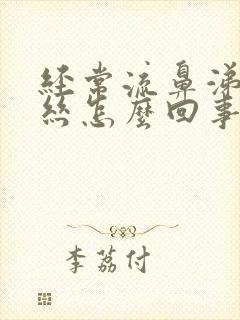 经常流鼻涕
丝怎麼回事
李荔付